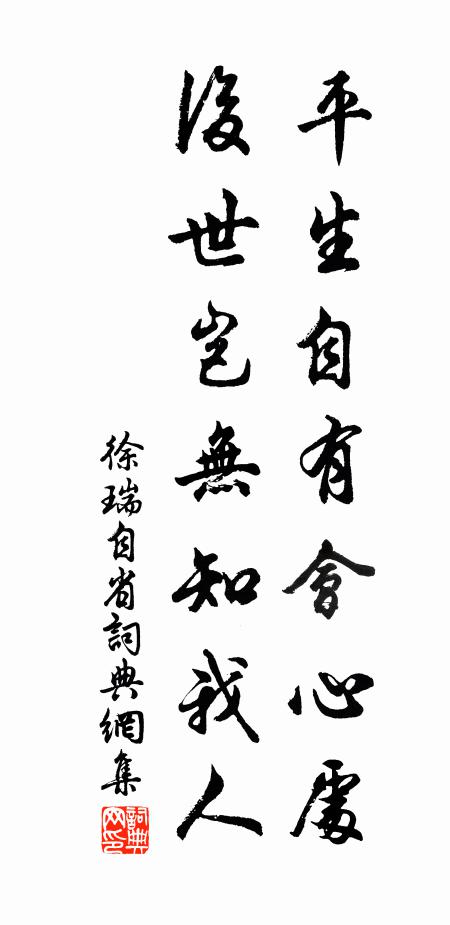 平生自有會心處
後世豈無知我人
徐瑞自省詞典網集
詞典網印